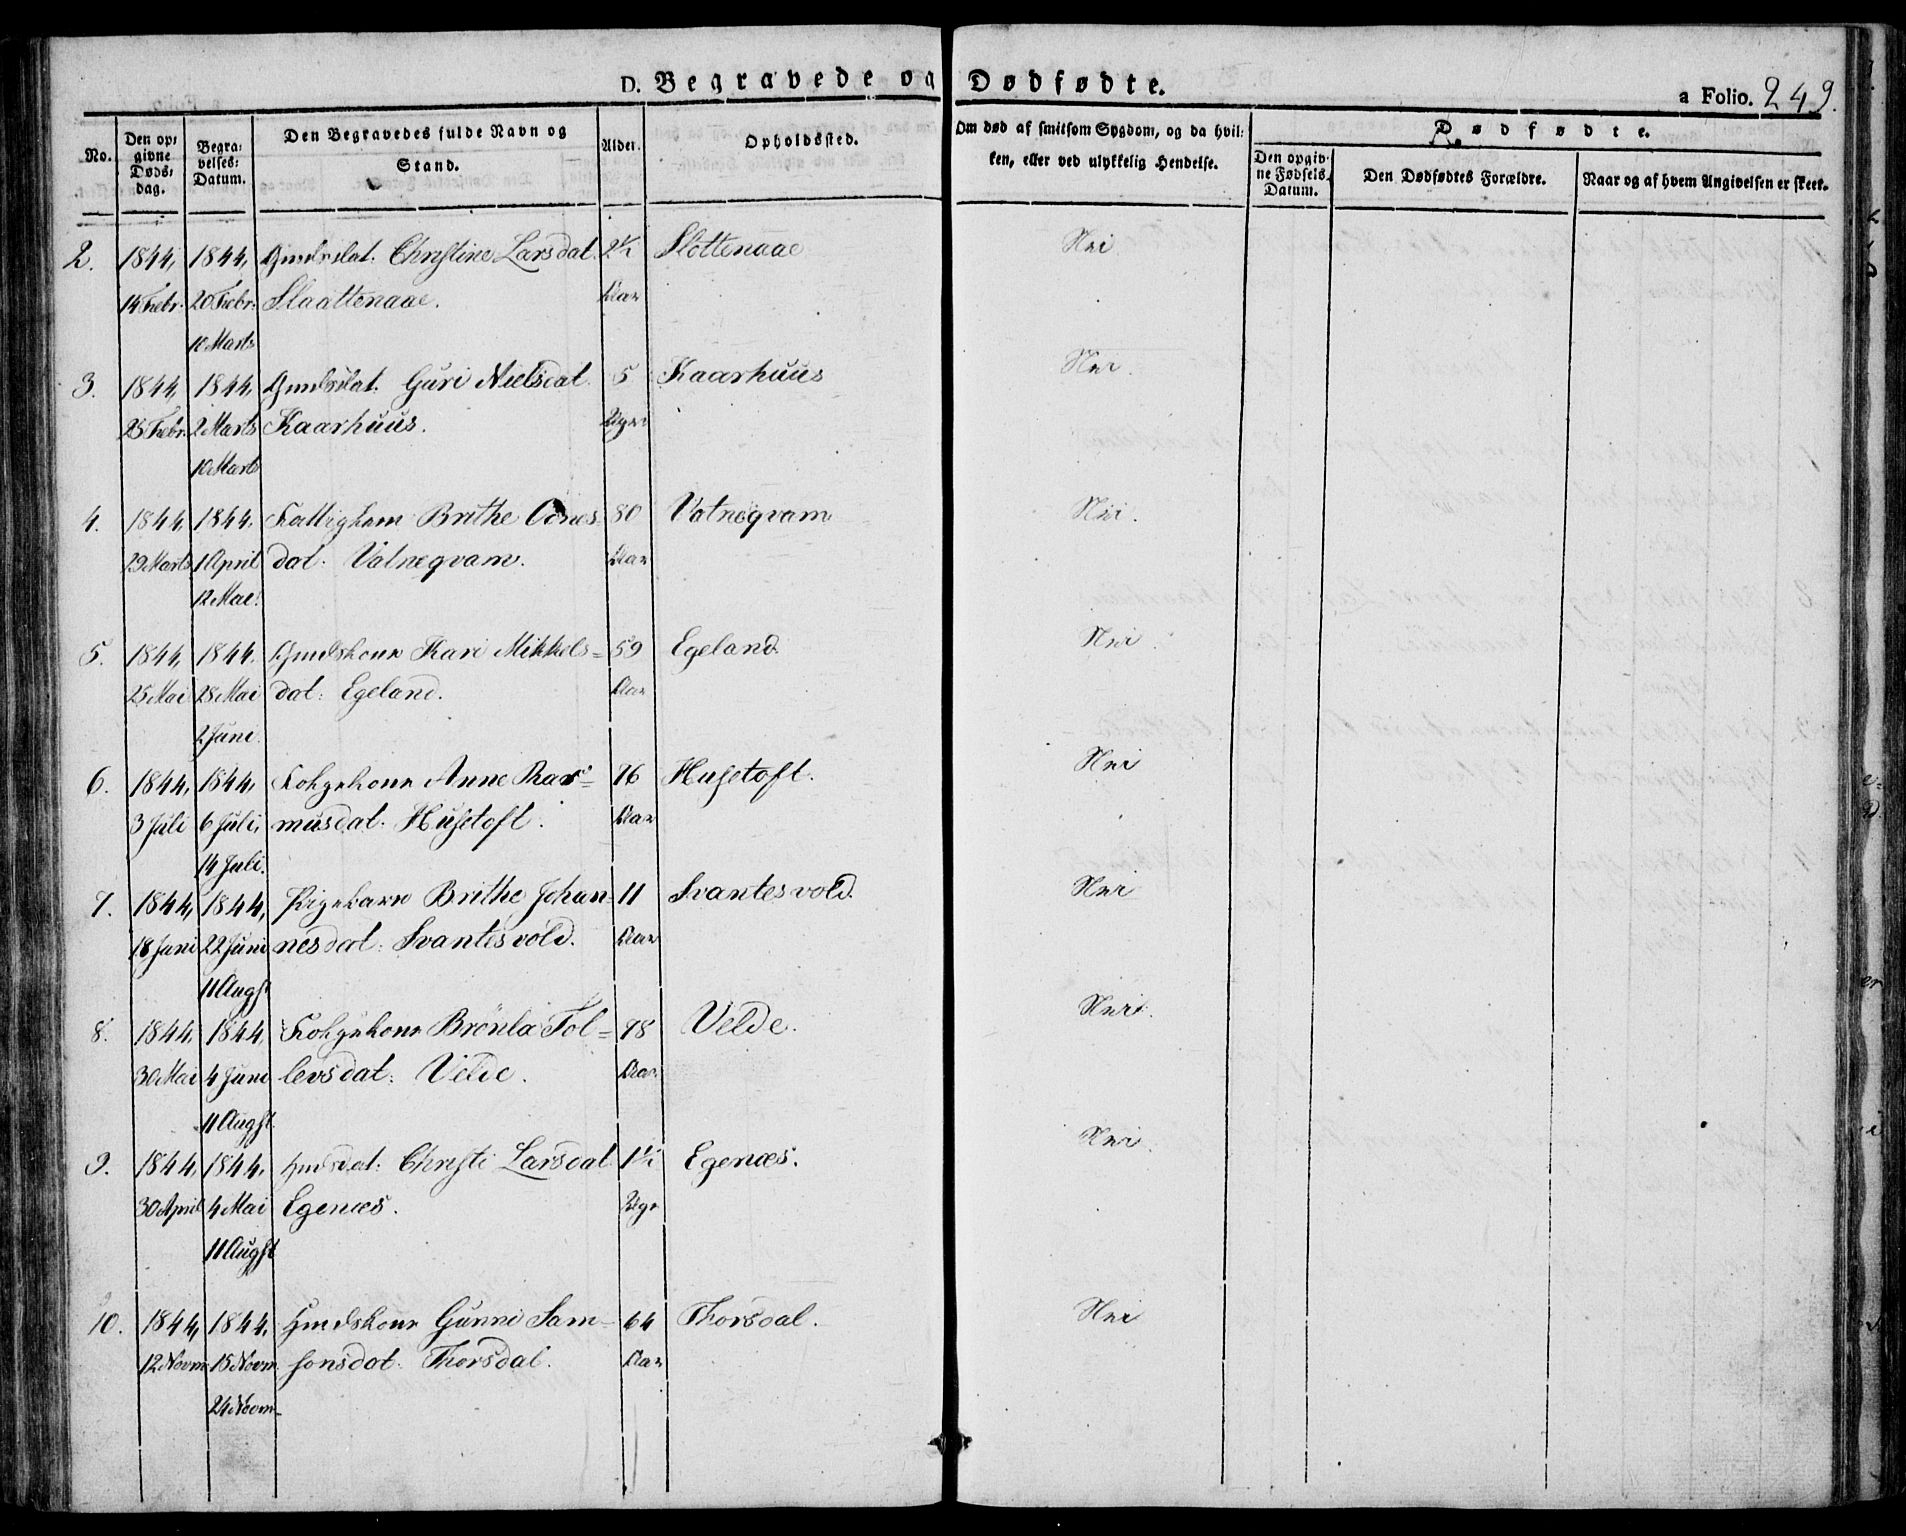 D. Begravede og Dødfødte.
a Folio. 249.
No. Den opgivne Dødsdag. Begravelses-Datum. Den Begravedes fulde Navn og Stand. Alder. Opholdssted. Om død af smitsom Sygdom, og da hvilken, eller ved ulykkelig Hendelse. Dødfødte.
Den opgivne Fødsels Datum. Den Dødfødtes Forældre. Naar og af hvem Angivelsen er skeet.
2. 1844, 1844, Christine Larsdat. 2½ Slottenaae Nei
14 Febr. 20 Febr: Slaattenaae. Aar
10 Marts
3. 1844, 1844, Guri Nielsdat. 5 Kaarhuus Nei.
25 Febr. 2 Marts Kaarhuus. Uger
10 Marts
4. 1844, 1844, Brithe 80 Vatneqvam Nei.
29 Marts 1 April dat. Vatneqvam. Aar
12 Mae:
5. 1844, 1844. Kari Mikkels= 59 Egeland. Nei.
25 Mai 28 Mai dat: Egeland. Aar
2 Juni.
6. 1844, 1844, Anne Ras= 76 Husetoft. Nei
3 Juli 6 Juli, musdat. Husetoft. Aar
14 Juli.
7. 1844, 1844, Pigebarn Brithe Johan= 11 Svantesvold. Nei
18 Juni 22 Juni nesdat: Svantesvold. Aar
11 Augst
8. 1844, 1844, Brönla Tol= 78 Velde. Nei.
30 Mai 4 Juni levsdat: Velde. Aar
11 Augst.
9. 1844, 1844, Christi Larsdat 1½ Egenæs. Nei.
30 April 4 Mai Egenæs. Uge
11 Augst
10. 1844, 1844, Gunni Sam= 64 Thorsdal. Nei
12 Novm 15 Novm. sonsdat: Thorsdal. Aar
24 Novm.